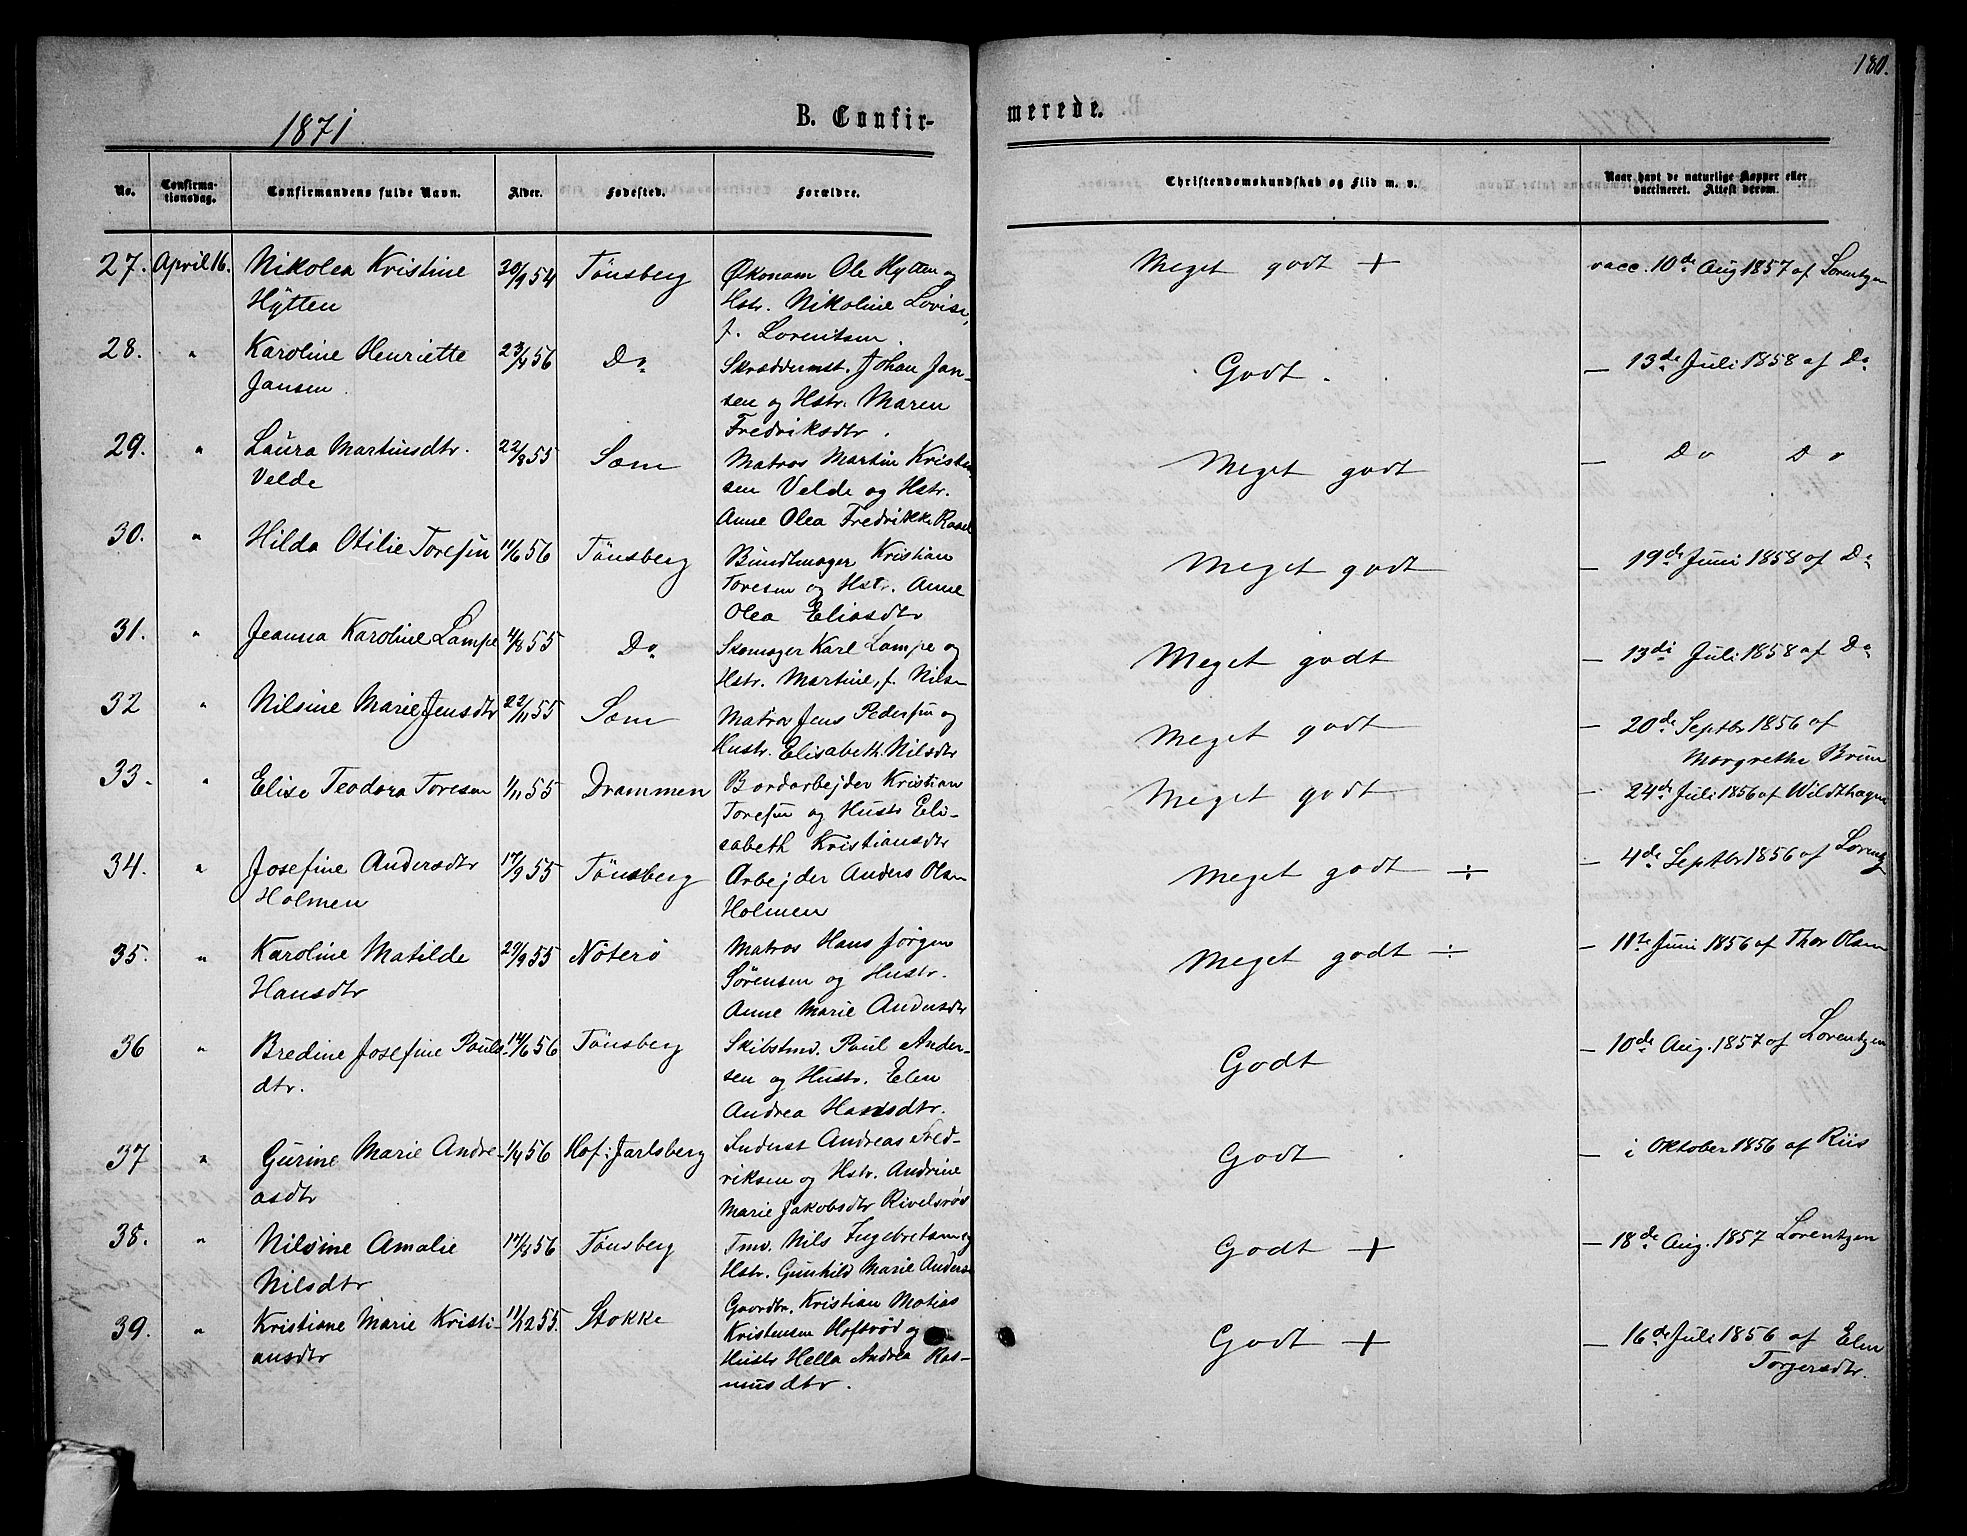 180.
1871.
B. Confir-
merede.
No. Confirma-tionsdag. Confirmandens fulde Navn. Alder. Fødested. Forældre. Christendomskundskab og Flid m. v. Naar havt de naturlige Kopper eller vaccineret. Attest derom.
27. April 16. Nikolea Kristine 20/9 54 Tönsberg Økonom Ole Hytten og Meget godt + vacc. 10de Aug 1857 af Lorentzen
Hytten Hstr. Nikoline Lovise,
f. Lorentsen.
28. " Karoline Henriette 23/4 56 Do Skræddermst. Johan Jan- Godt. — 13de Juli 1858 af Do
Jansen. sen og Hstr. Maren
Fredriksdtr.
29. " Laura Martinsdtr. 22/8 55 Sæm Matros Martin Kristen Meget godt — Do Do
Velde sen Velde og Hstr.
Anne Olea Fredrikke
30. " Hilda Otilie Toresen 11/6 56 Tönsberg Bundtmager Kristian Meget godt — 19de Juni 1858 af Do
Toresen og Hstr. Anne
Olea Eliasdtr
31. " Jeanna Karoline Lampe 4/8 55 Do Skomager Karl Lampe og Meget godt — 13de Juli 1858 af Do
Hstr. Martine, f. Nilsen
32 " Nilsine Marie Jensdtr 22/11 55 Sæm Matros Jens Pedersen og Meget godt — 20de Septbr 1856 af
Hustr. Elisabeth Nilsdtr Margrethe Bruun
33. " Elise Teodora Toresen 1/11 55 Drammen Bordarbejder Kristian Meget godt — 24de Juli 1856 af Wildthagen
Toresen og Hustr Eli-
sabeth Kristiansdtr
34. " Josefine Andersdtr 17/9 55 Tönsberg Arbejder Anders Olsen Meget godt ÷ — 4de Septbr 1856 af Lorentz
Holmen Holmen
35. " Karoline Matilde 29/9 55 Nöterö Matros Hans Jørgen Meget godt ÷ — 11te Juni 1856 af Thor Olsen
Hansdtr Sørensen og Hustr.
Anne Marie Andersdtr
36 " Bredine Josefine Pouls- 14/6 56 Tönsberg Skibstmd. Poul Ander- Godt — 10de Aug. 1857 af Lorentzen
dtr. sen og Hustr. Elen
Andrea Hansdtr.
37 " Gurine Marie Andre- 1/4 56 Hof i Jarlsberg Inderst Andreas Fred- Godt — i Oktober 1856 af Riis
asdtr riksen og Hstr. Andrine
Marie Jakobsdtr Rivelsrød
38. " Nilsine Amalie 14/4 56 Tönsberg Tmd. Nils Ingebretsen og Godt + — 18de Aug. 1857 Lorentzen
Nilsdtr Hstr. Gunhild Marie Anders
39. " Kristiane Marie Kristi- 11/12 55. Stokke Gaardbr. Kristian Matias Godt + — 16de Juli 1856 af Elen
ansdtr Kristensen Hofsrød og Torgersdtr.
Hustr Hella Andrea Ras-
musdtr.